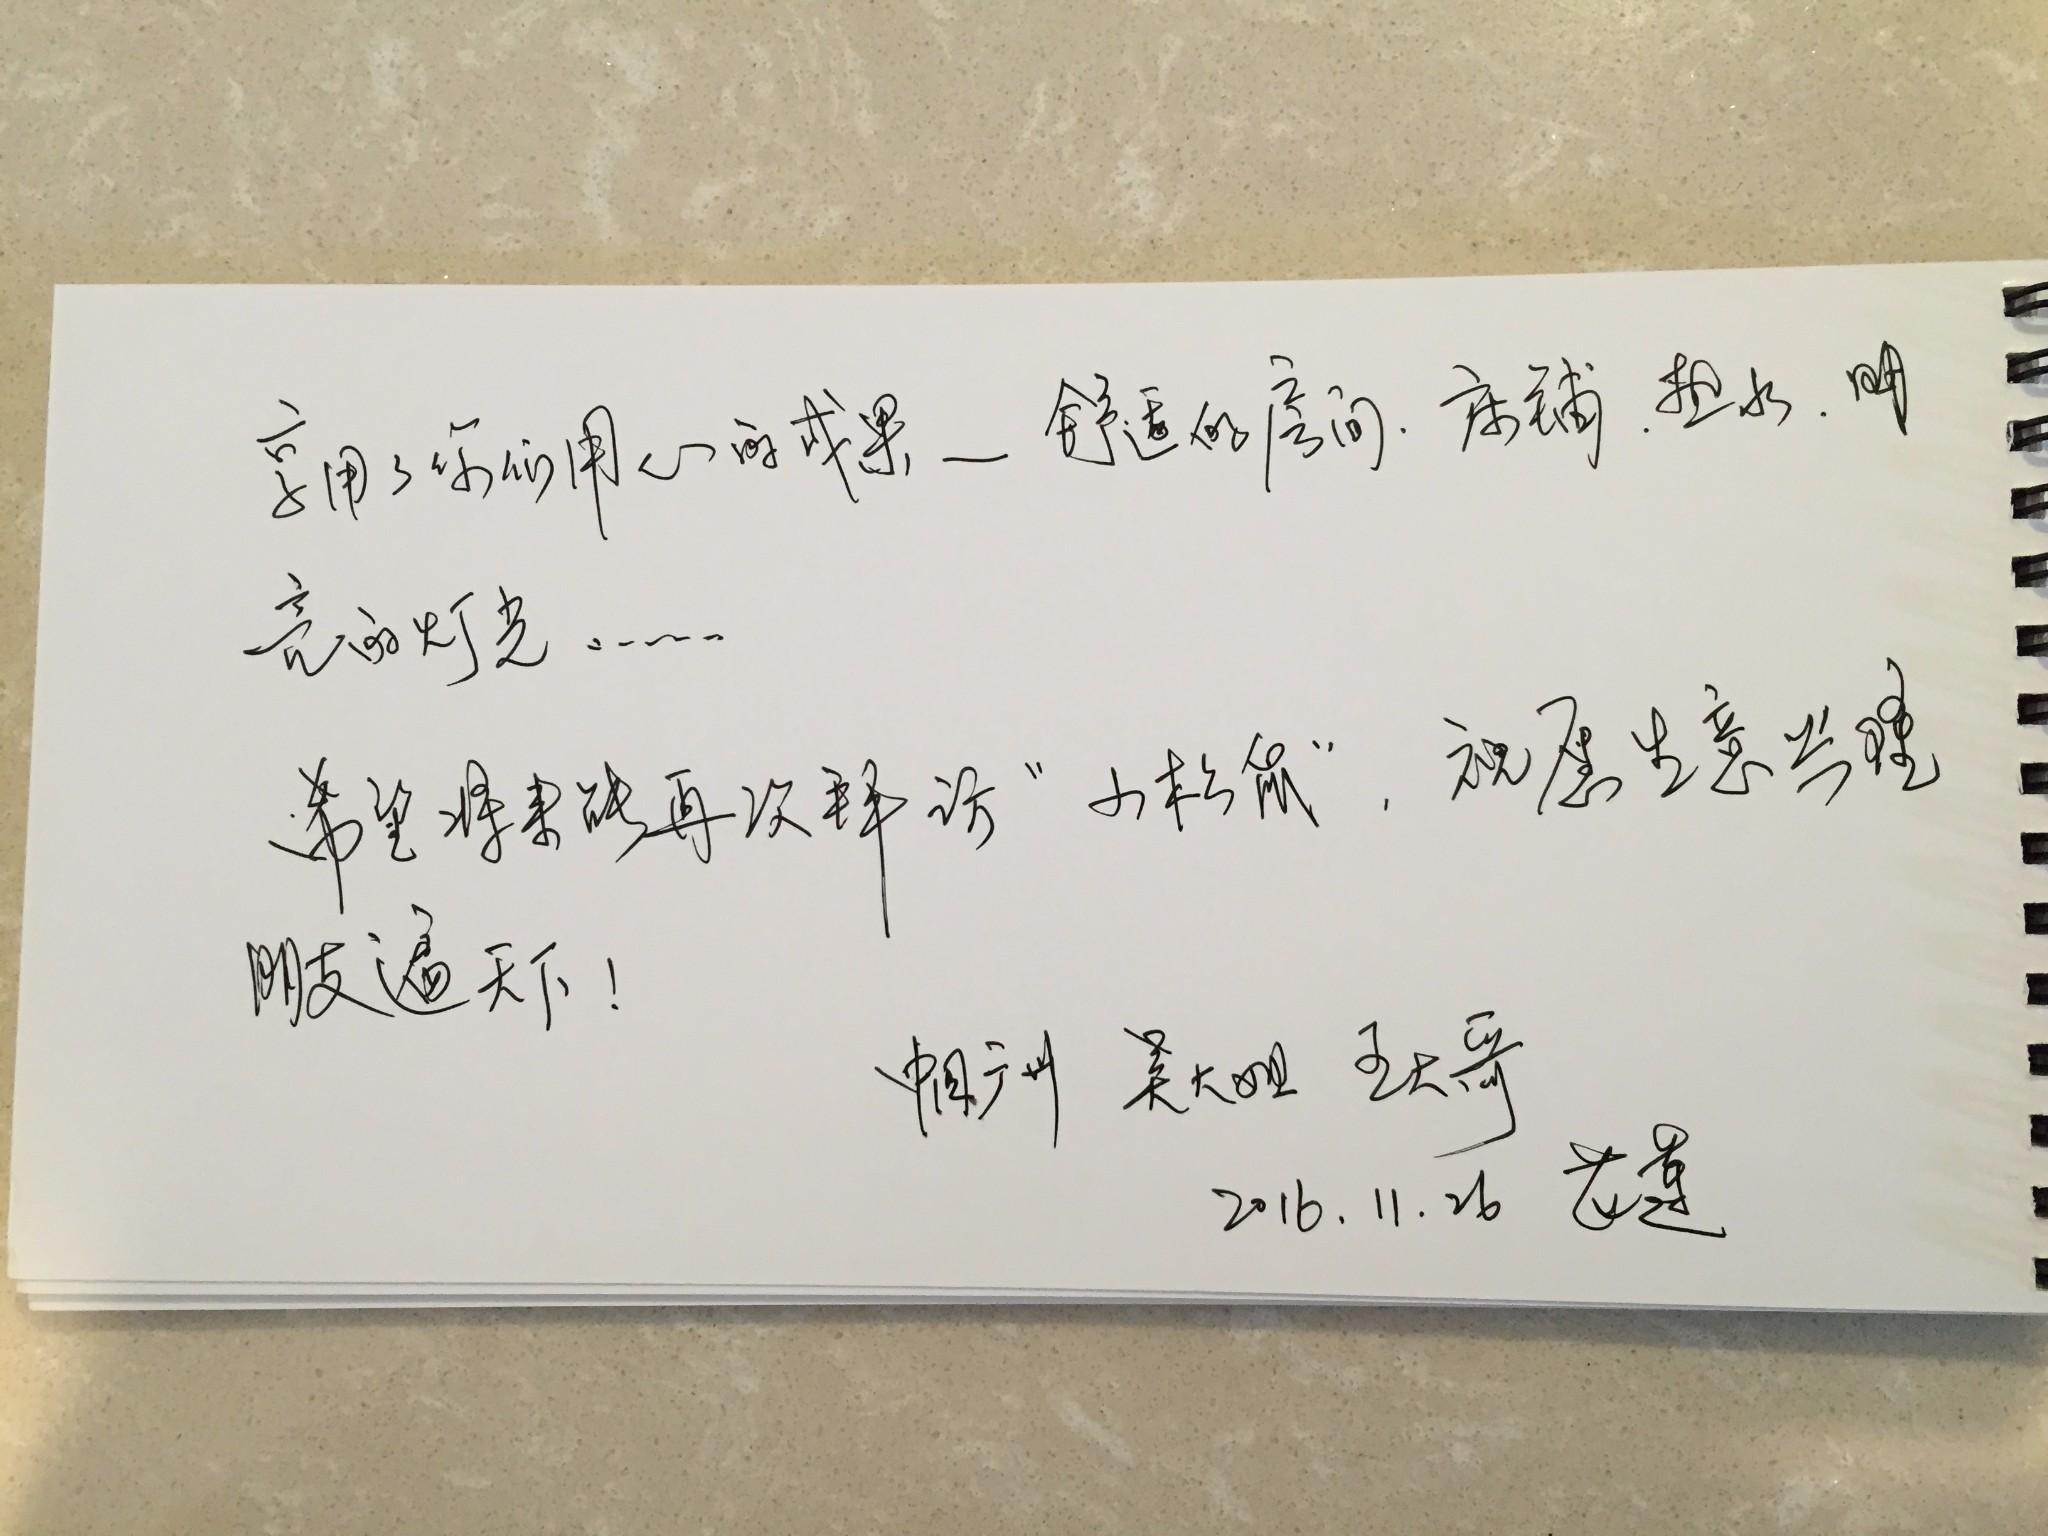 享用了你们用心的成果—舒适的房间.床铺.热水.明
亮的灯光……
希望将来能再次拜访“小松鼠”，祝愿生意兴隆
朋友遍天下！
中国广州 吴大姐 王大哥
2016.11.26 花莲